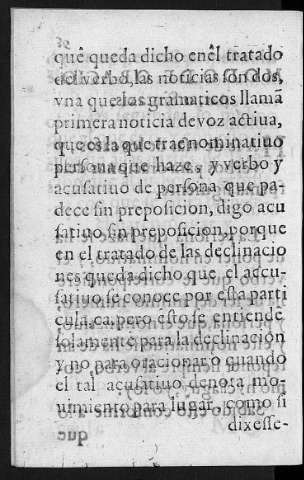 quê queda dicho enêl tratado
del verbo, las noticias son dos,
vna que los gramaticos llamã
primera noticia de voz actiua,
que es la que trae nominatiuo
persona que haze, y verbo y
acusatiuo de persona que pa-
dece sin preposicion, digo acu
satiuo sin preposicion, porque
en el tratado de las declinacio
nes queda dicho que el accu-
satiuo se conoce por esta parti
cula, ca, pero esto se entiende
solamente para la declinacion
y no para oracionar o quando
el tal acusatiuo denota mo-
uimiento para lugar, como si
dixesse-